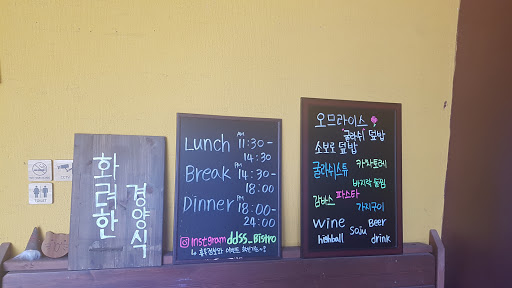 화려한
경양식
CCTV
TOILET
Lunch AM 11:30-
PM 14:30
Break PM 14:30-
18:00
Dinner PM 18:00-
24:00
Instgram ddss_Bistro
오므라이스
굴라쉬 덮밥
소보로 덮밥
굴라쉬스튜 카차토레
바지락 술찜
감바스 파스타
가지구이
Wine Beer
Soju
highball drink